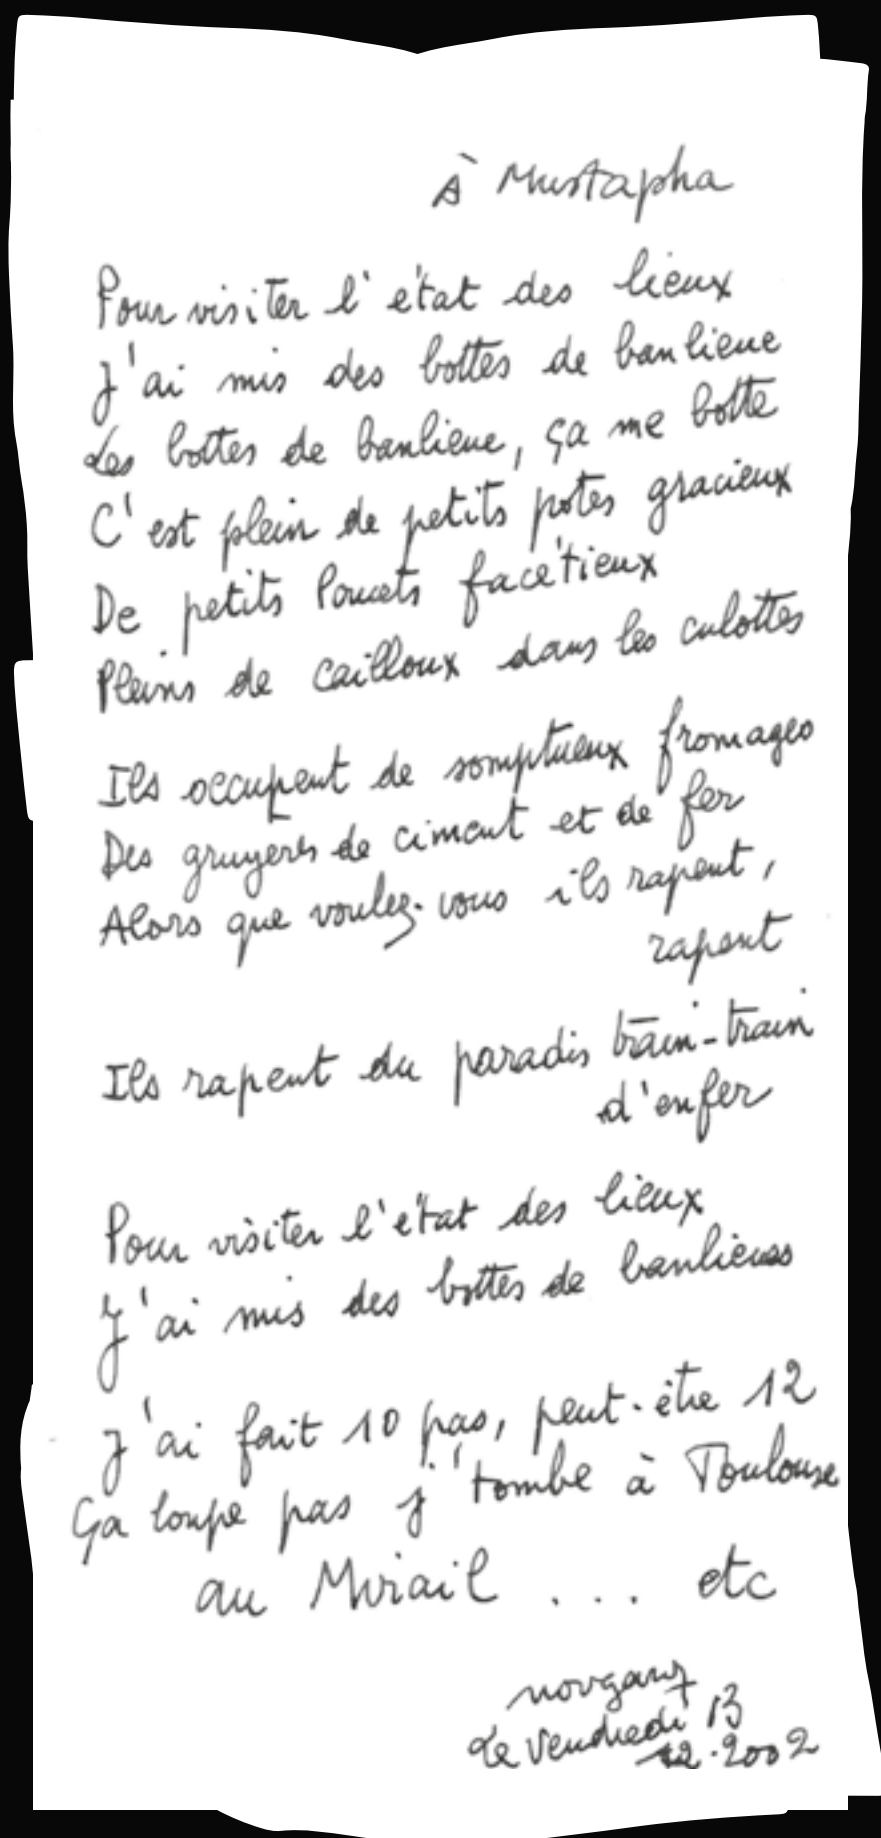 À Mustapha
Pour visiter l'état des lieux
J'ai mis des bottes de banlieue
Les bottes de banlieue, ça me botte
C'est plein de petits potes gracieux
De petits Poucets facétieux
Pleins de cailloux dans les culottes
Ils occupent de somptueux fromages
Des gruyères de ciment et de fer
Alors que voulez-vous ils rapent,
rapent
Ils rapent du paradis train-train
d'enfer
Pour visiter l'état des lieux
J'ai mis des bottes de banlieues
J'ai fait 10 pas, peut-être 12
Ça loupe pas j'tombe à Toulouse
au Mirail ... etc
Le Vendredi 13
12.2002